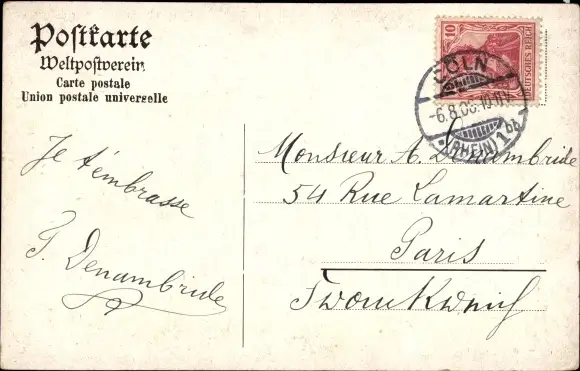 Postkarte
Weltpostverein
Carte postale
Union postale universelle
10
DEUTSCHES REICH
CÖLN
(RHEIN) 1
Je t'embrasse
Denambride
Monsieur A. Denambride
54 Rue Lamartine
Paris